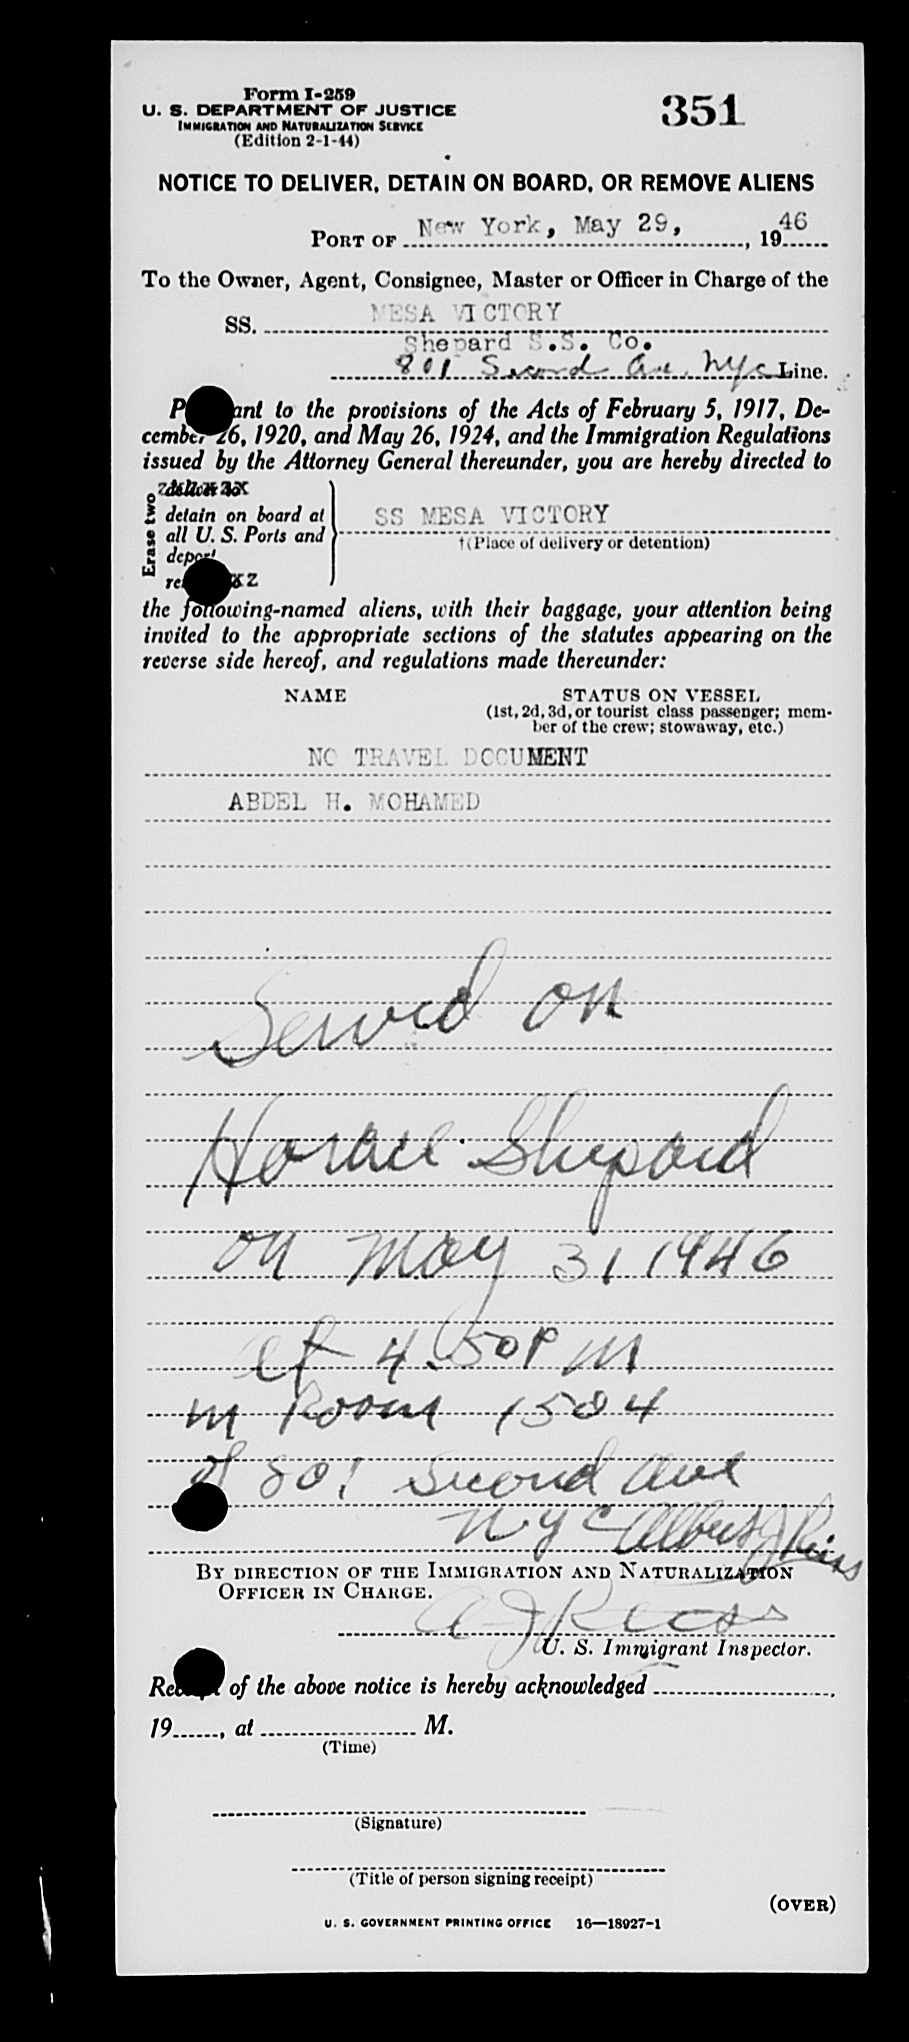 Form I-259
U. S. DEPARTMENT OF JUSTICE
IMMIGRATION AND NATURALIZATION SERVICE
(Edition 2-1-44)
351
NOTICE TO DELIVER, DETAIN ON BOARD, OR REMOVE ALIENS
PORT OF New York, May 29, , 1946
To the Owner, Agent, Consignee, Master or Officer in Charge of the
SS. MESA VICTORY
Shepard S.S. Co.
801 Second Ave. Nyc Line.
P ant to the provisions of the Acts of February 5, 1917, De-
cember 26, 1920, and May 26, 1924, and the Immigration Regulations
issued by the Attorney General thereunder, you are hereby directed to
Erase two
detain on board at
all U. S. Ports and
deport
SS MESA VICTORY
†(Place of delivery or detention)
the following-named aliens, with their baggage, your attention being
invited to the appropriate sections of the statutes appearing on the
reverse side hereof, and regulations made thereunder:
NAME
STATUS ON VESSEL
(1st, 2d, 3d, or tourist class passenger; mem-
ber of the crew; stowaway, etc.)
NO TRAVEL DOCUMENT
ABDEL H. MOHAMED
Served on
Horace Shepard
on May 31 1946
at 4.50 PM
in Room 1504
of 801 Second Ave
NYC Albert J Reiss
BY DIRECTION OF THE IMMIGRATION AND NATURALIZATION
OFFICER IN CHARGE.
A J Reiss
U. S. Immigrant Inspector.
Receipt of the above notice is hereby acknowledged ,
19 , at M.
(Time)
(Signature)
(Title of person signing receipt)
(OVER)
U. S. GOVERNMENT PRINTING OFFICE 16—18927-1